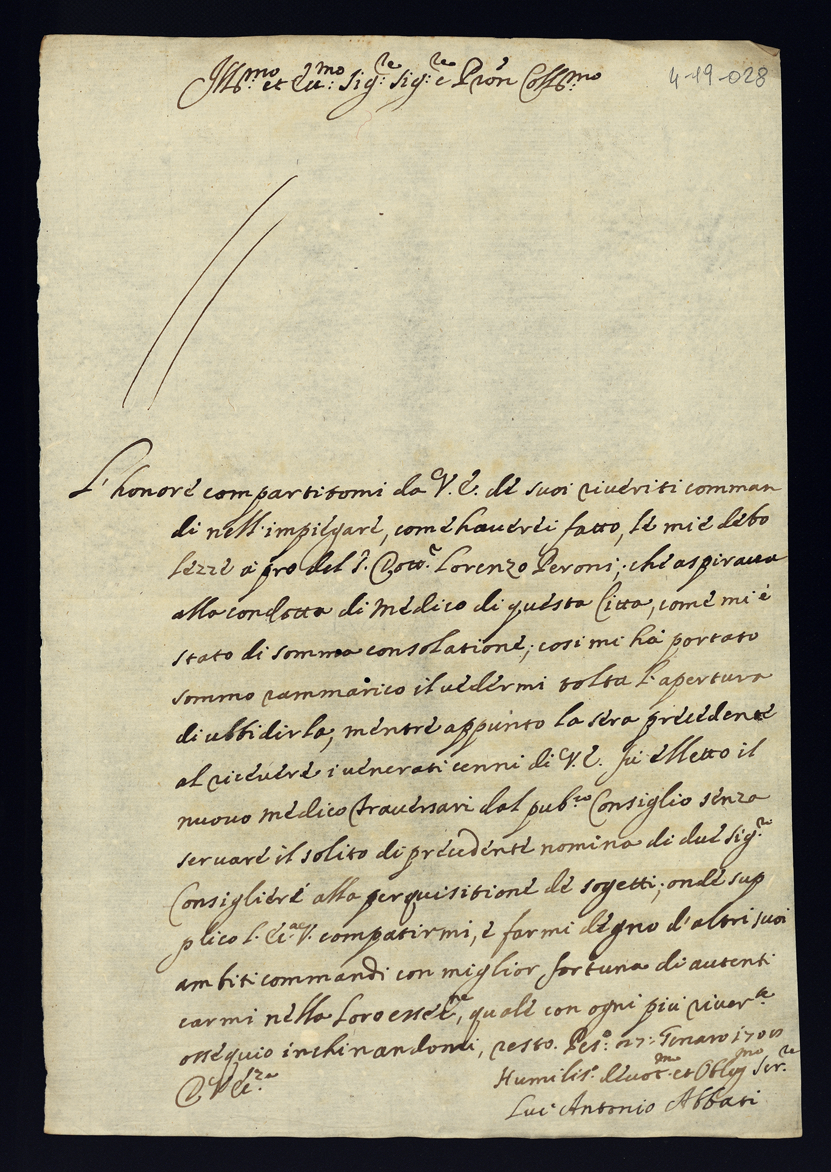 Ill:mo et Ecc:mo Sig:re Sig:re e Pron Coll:mo
4-19-028
L'honore compartitomi da V. E. de suoi riveriti comman
di nell'impiegare, come haverei fatto, le mie debo
lezze a pro del S. Dott.e Lorenzo Peroni, che aspirava
alla condotta di Medico di questa Citta, come mi è
stato di somma consolatione, cosi mi hà portato
sommo rammarico il vedermi tolta l'apertura
di ubbidirla, mentre appunto la sera precedente
al ricevere i venerati cenni di V. E. fù elletto il
nuovo medico Traversari dal pub.co Consiglio senza
servare il solito di precedente nomina di due Sig.ri
Consigliere alla perquisitione de sogetti; onde sup
plico l'E. V. compatirmi, e farmi degno d'altri suoi
ambiti commandi con miglior fortuna di autenti
carmi nella loro essec.ne, quale con ogni più river.te
ossequio inchinandomi, resto. Pes.o 27: Genaro 1700
D V. Ecc.za
Humilis.o Devot.mo et Oblig.mo Ser.re
Lui Antonio Abbati